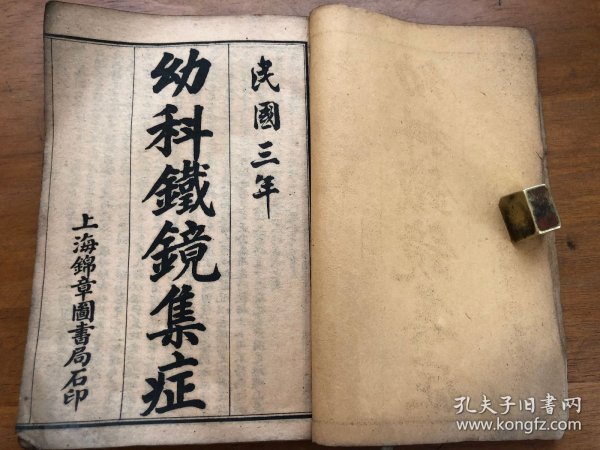 民國三年
幼科鐵鏡集症
上海錦章圖書局石印
孔夫子旧书网
www.kongfz.com